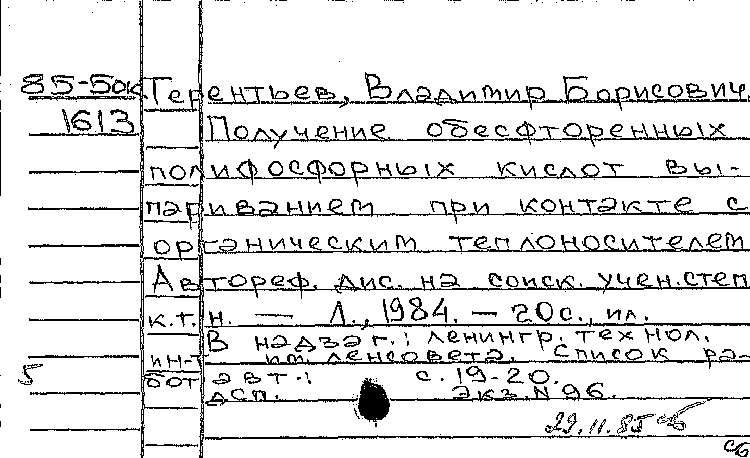 85-5ок Терентьев, Владимир Борисович.
1613 Получение обесфторенных
полифосфорных кислот вы-
париванием при контакте с
органическим теплоносителем
Автореф. дис. на соиск. учен. степ
к.т.н. — Л., 1984. — 20 с., ил.
В надзаг.: Ленингр. технол.
ин-т им. Ленсовета. Список ра-
5 бот авт.: с. 19-20.
ДСП. Экз. N 96.
29.11.85